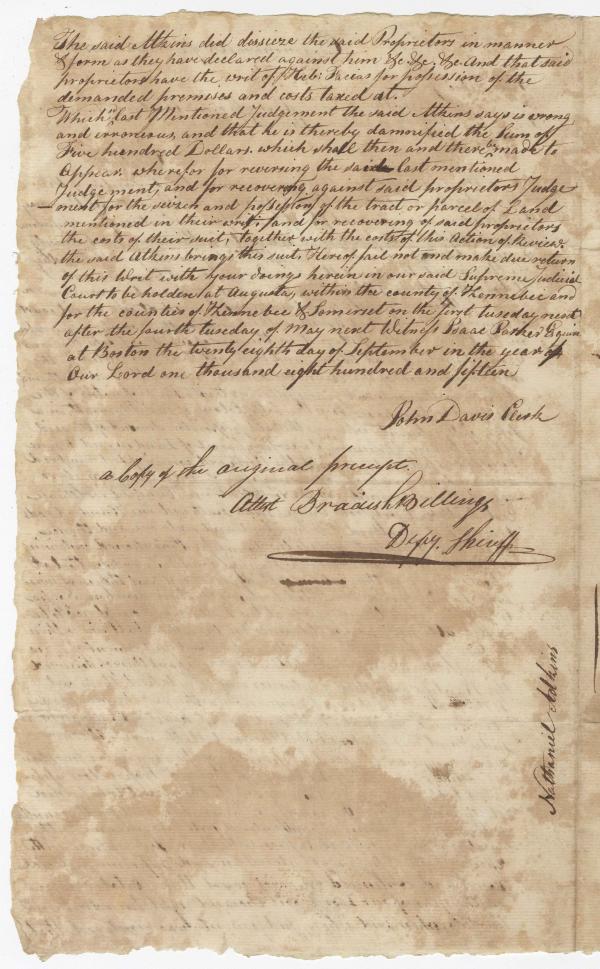 The said Atkins did disseize the said Proprietors in manner
& form as they have declared against him &c &c &c And that said
proprietors have the writ of Habe: Facias for possession of the
demanded premises and costs taxed at.
Which last Mentioned Judgement the said Atkins says is wrong
and erroneous, and that he is thereby damnified the Sum of
Five hundred Dollars. which shall then and there be made to
Appear. wherefor for reversing the said last mentioned
Judgement, and for recovering against said proprietors Judge
ment for the seizen and possession of the tract or parcel of Land
mentioned in their writ, and for recovering of said proprietors
the costs of their suit, together with the costs of this Action of Review.
the said Atkins brings this suit, Hereof fail not and make due return
of this Writ with your doings herein in our said Supreme Judicial
Court to be holden at Augusta, within the county of Kennebec and
for the counties of Kennebec & Somerset on the first tuesday next
after the fourth tuesday of May next Witness Isaac Parker Esquire
at Boston the twenty eighth day of September in the year of
Our Lord one thousand eight hundred and fifteen
John Davis Clerk
a Copy of the original precept.
Attest Bradish Billings
Depy. Sheriff
Nathaniel Adkins